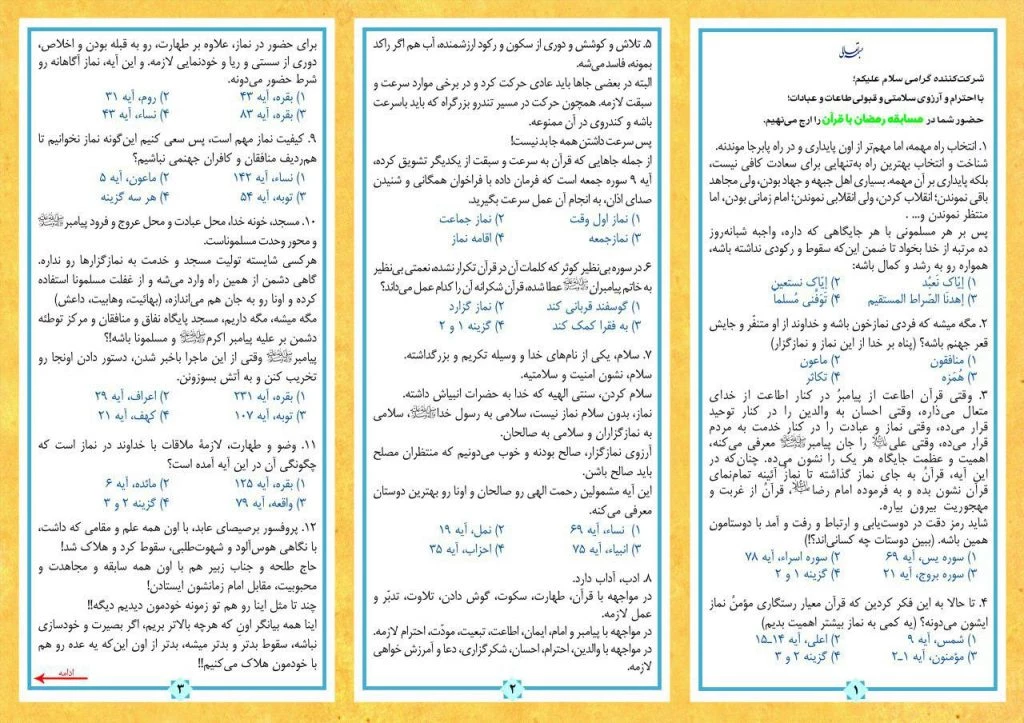 بسمه تعالی
شرکت‌کننده گرامی سلام علیکم؛
با احترام و آرزوی سلامتی و قبولی طاعات و عبادات؛
حضور شما در مسابقه رمضان با قرآن را ارج می‌نهیم.
۱. انتخاب راه مهمه، اما مهم‌تر از اون پایداری و در راه پابرجا موندنه.
شناخت و انتخاب بهترین راه به‌تنهایی برای سعادت کافی نیست،
بلکه پایداری بر آن مهمه. بسیاری اهل جبهه و جهاد بودن، ولی مجاهد
باقی نموندن؛ انقلاب کردن، ولی انقلابی نموندن؛ امام زمانی بودن، اما
منتظر نموندن و... .
پس بر هر مسلمونی با هر جایگاهی که داره، واجبه شبانه‌روز
ده مرتبه از خدا بخواد تا ضمن این‌که سقوط و رکودی نداشته باشه،
همواره رو به رشد و کمال باشه:
۱) إیّاک نَعبُد ۲) إیّاک نستعین
۳) اِهدنَا الصّراط المستقیم ۴) تَوَفَّنی مُسلما
۲. مگه میشه که فردی نمازخون باشه و خداوند از او متنفّر و جایش
قعر جهنم باشه؟ (پناه بر خدا از این نماز و نمازگزار)
۱) منافقون ۲) ماعون
۳) هُمَزه ۴) تکاثر
۳. وقتی قرآن اطاعت از پیامبرُ در کنار اطاعت از خدای
متعال می‌ذاره، وقتی احسان به والدین را در کنار توحید
قرار می‌ده، وقتی نماز و عبادت را در کنار خدمت به مردم
قرار می‌ده، وقتی علی را جان پیامبر معرفی می‌کنه،
اهمیت و عظمت جایگاه هر یک را نشون می‌ده. چنان‌که در
این آیه، قرآنُ به جای نماز گذاشته تا نمازُ آئینه تمام‌نمای
قرآن نشون بده و به فرموده امام رضا، قرآنُ از غربت و
مهجوریت بیرون بیاره.
شاید رمز دقت در دوست‌یابی و ارتباط و رفت و آمد با دوستامون
همین باشه. (ببین دوستات چه کسانی‌اند؟!)
۱) سوره یس، آیه ۶۹ ۲) سوره اسراء، آیه ۷۸
۳) سوره بروج، آیه ۲۱ ۴) گزینه ۱ و ۲
۴. تا حالا به این فکر کردین که قرآن معیار رستگاری مؤمنُ نماز
ایشون می‌دونه؟ (یه کمی به نماز بیشتر اهمیت بدیم)
۱) شمس، آیه ۹ ۲) اعلی، آیه ۱۴ــ۱۵
۳) مؤمنون، آیه ۱ــ۲ ۴) گزینه ۲ و ۳
۱
۵. تلاش و کوشش و دوری از سکون و رکود ارزشمنده، آب هم اگر راکد
بمونه، فاسد می‌شه.
البته در بعضی جاها باید عادی حرکت کرد و در برخی موارد سرعت و
سبقت لازمه. همچون حرکت در مسیر تندرو بزرگراه که باید باسرعت
باشه و کندروی در آن ممنوعه.
پس سرعت داشتن همه جا بد نیست!
از جمله جاهایی که قرآن به سرعت و سبقت از یکدیگر تشویق کرده،
آیه ۹ سوره جمعه است که فرمان داده با فراخوان همگانی و شنیدن
صدای اذان، به انجام آن عمل سرعت بگیرید.
۱) نماز اول وقت ۲) نماز جماعت
۳) نمازجمعه ۴) اقامه نماز
۶. در سوره بی‌نظیر کوثر که کلمات آن در قرآن تکرار نشده، نعمتی بی‌نظیر
به خاتم پیامبران عطا شده، قرآن شکرانه آن را کدام عمل می‌داند؟
۱) گوسفند قربانی کند ۲) نماز گزارد
۳) به فقرا کمک کند ۴) گزینه ۱ و ۲
۷. سلام، یکی از نام‌های خدا و وسیله تکریم و بزرگداشته.
سلام، نشون امنیت و سلامتیه.
سلام کردن، سنتی الهیه که خدا به حضرات انبیاش داشته.
نماز، بدون سلام نماز نیست، سلامی به رسول خدا، سلامی
به نمازگزاران و سلامی به صالحان.
آرزوی نمازگزار، صالح بودنه و خوب می‌دونیم که منتظران مصلح
باید صالح باشن.
این آیه مشمولین رحمت الهی رو صالحان و اونا رو بهترین دوستان
معرفی می‌کنه.
۱) نساء، آیه ۶۹ ۲) نمل، آیه ۱۹
۳) انبیاء، آیه ۷۵ ۴) احزاب، آیه ۳۵
۸. ادب، آداب دارد.
در مواجهه با قرآن، طهارت، سکوت، گوش دادن، تلاوت، تدبّر و
عمل لازمه.
در مواجهه با پیامبر و امام، ایمان، اطاعت، تبعیت، مودّت، احترام لازمه.
در مواجهه با والدین، احترام، احسان، شکرگزاری، دعا و آمرزش خواهی
لازمه.
۲
برای حضور در نماز، علاوه بر طهارت، رو به قبله بودن و اخلاص،
دوری از سستی و ریا و خودنمایی لازمه. و این آیه، نماز آگاهانه رو
شرط حضور می‌دونه.
۱) بقره، آیه ۴۳ ۲) روم، آیه ۳۱
۳) بقره، آیه ۸۳ ۴) نساء، آیه ۴۳
۹. کیفیت نماز مهم است، پس سعی کنیم این‌گونه نماز نخوانیم تا
هم‌ردیف منافقان و کافران جهنمی نباشیم؟
۱) نساء، آیه ۱۴۲ ۲) ماعون، آیه ۵
۳) توبه، آیه ۵۴ ۴) هر سه گزینه
۱۰. مسجد، خونه خدا، محل عبادت و محل عروج و فرود پیامبر
و محور وحدت مسلموناست.
هرکسی شایسته تولیت مسجد و خدمت به نمازگزارها رو نداره.
گاهی دشمن از همین راه وارد می‌شه و از غفلت مسلمونا استفاده
کرده و اونا رو به جان هم می‌اندازه، (بهائیت، وهابیت، داعش)
مگه میشه، مگه داریم، مسجد پایگاه نفاق و منافقان و مرکز توطئه
دشمن بر علیه پیامبر اکرم و مسلمونا باشه!؟
پیامبر وقتی از این ماجرا باخبر شدن، دستور دادن اونجا رو
تخریب کنن و به آتش بسوزونن.
۱) بقره، آیه ۲۳۱ ۲) اعراف، آیه ۲۹
۳) توبه، آیه ۱۰۷ ۴) کهف، آیه ۲۱
۱۱. وضو و طهارت، لازمهٔ ملاقات با خداوند در نماز است که
چگونگی آن در این آیه آمده است؟
۱) بقره، آیه ۱۲۵ ۲) مائده، آیه ۶
۳) واقعه، آیه ۷۹ ۴) گزینه ۲ و ۳
۱۲. پروفسور برصیصای عابد، با اون همه علم و مقامی که داشت،
با نگاهی هوس‌آلود و شهوت‌طلبی، سقوط کرد و هلاک شد!
حاج طلحه و جناب زبیر هم با اون همه سابقه و مجاهدت و
محبوبیت، مقابل امام زمانشون ایستادن!
چند تا مثل اینا رو هم تو زمونه خودمون دیدیم دیگه!!
اینا همه بیانگر اونِ که هرچه بالاتر بریم، اگر بصیرت و خودسازی
نباشه، سقوط بدتر و بدتر میشه، بدتر از اون این‌که یه عده رو هم
با خودمون هلاک می‌کنیم!!
ادامه
۳